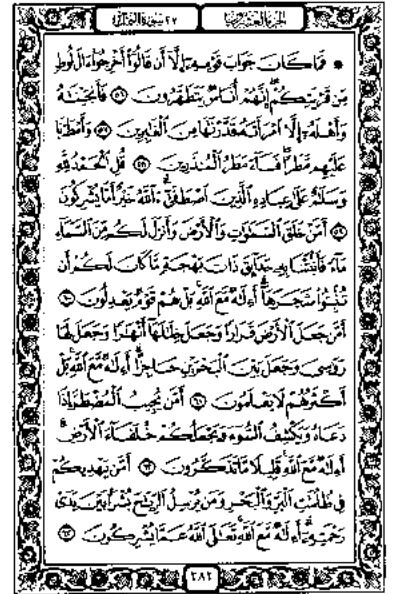 الجزء العشرون
سورة النمل ٢٧
۞ فَمَا كَانَ جَوَابَ قَوْمِهِۦٓ إِلَّآ أَن قَالُوٓا۟ أَخْرِجُوٓا۟ ءَالَ لُوطٍ
مِّن قَرْيَتِكُمْ إِنَّهُمْ أُنَاسٌ يَتَطَهَّرُونَ ٥٦ فَأَنجَيْنَٰهُ
وَأَهْلَهُۥٓ إِلَّا ٱمْرَأَتَهُۥ قَدَّرْنَٰهَا مِنَ ٱلْغَٰبِرِينَ ٥٧ وَأَمْطَرْنَا
عَلَيْهِم مَّطَرًا فَسَآءَ مَطَرُ ٱلْمُنذَرِينَ ٥٨ قُلِ ٱلْحَمْدُ لِلَّهِ
وَسَلَٰمٌ عَلَىٰ عِبَادِهِ ٱلَّذِينَ ٱصْطَفَىٰٓ ءَآللَّهُ خَيْرٌ أَمَّا يُشْرِكُونَ
٥٩ أَمَّنْ خَلَقَ ٱلسَّمَٰوَٰتِ وَٱلْأَرْضَ وَأَنزَلَ لَكُم مِّنَ ٱلسَّمَآءِ
مَآءً فَأَنۢبَتْنَا بِهِۦ حَدَآئِقَ ذَاتَ بَهْجَةٍ مَّا كَانَ لَكُمْ أَن
تُنۢبِتُوا۟ شَجَرَهَآ أَءِلَٰهٌ مَّعَ ٱللَّهِ بَلْ هُمْ قَوْمٌ يَعْدِلُونَ ٦٠
أَمَّن جَعَلَ ٱلْأَرْضَ قَرَارًا وَجَعَلَ خِلَٰلَهَآ أَنْهَٰرًا وَجَعَلَ لَهَا
رَوَٰسِىَ وَجَعَلَ بَيْنَ ٱلْبَحْرَيْنِ حَاجِزًا أَءِلَٰهٌ مَّعَ ٱللَّهِ بَلْ
أَكْثَرُهُمْ لَا يَعْلَمُونَ ٦١ أَمَّن يُجِيبُ ٱلْمُضْطَرَّ إِذَا
دَعَاهُ وَيَكْشِفُ ٱلسُّوٓءَ وَيَجْعَلُكُمْ خُلَفَآءَ ٱلْأَرْضِ
أَءِلَٰهٌ مَّعَ ٱللَّهِ قَلِيلًا مَّا تَذَكَّرُونَ ٦٢ أَمَّن يَهْدِيكُمْ
فِى ظُلُمَٰتِ ٱلْبَرِّ وَٱلْبَحْرِ وَمَن يُرْسِلُ ٱلرِّيَٰحَ بُشْرًۢا بَيْنَ يَدَىْ
رَحْمَتِهِۦٓ أَءِلَٰهٌ مَّعَ ٱللَّهِ تَعَٰلَى ٱللَّهُ عَمَّا يُشْرِكُونَ ٦٣
٣٨٢